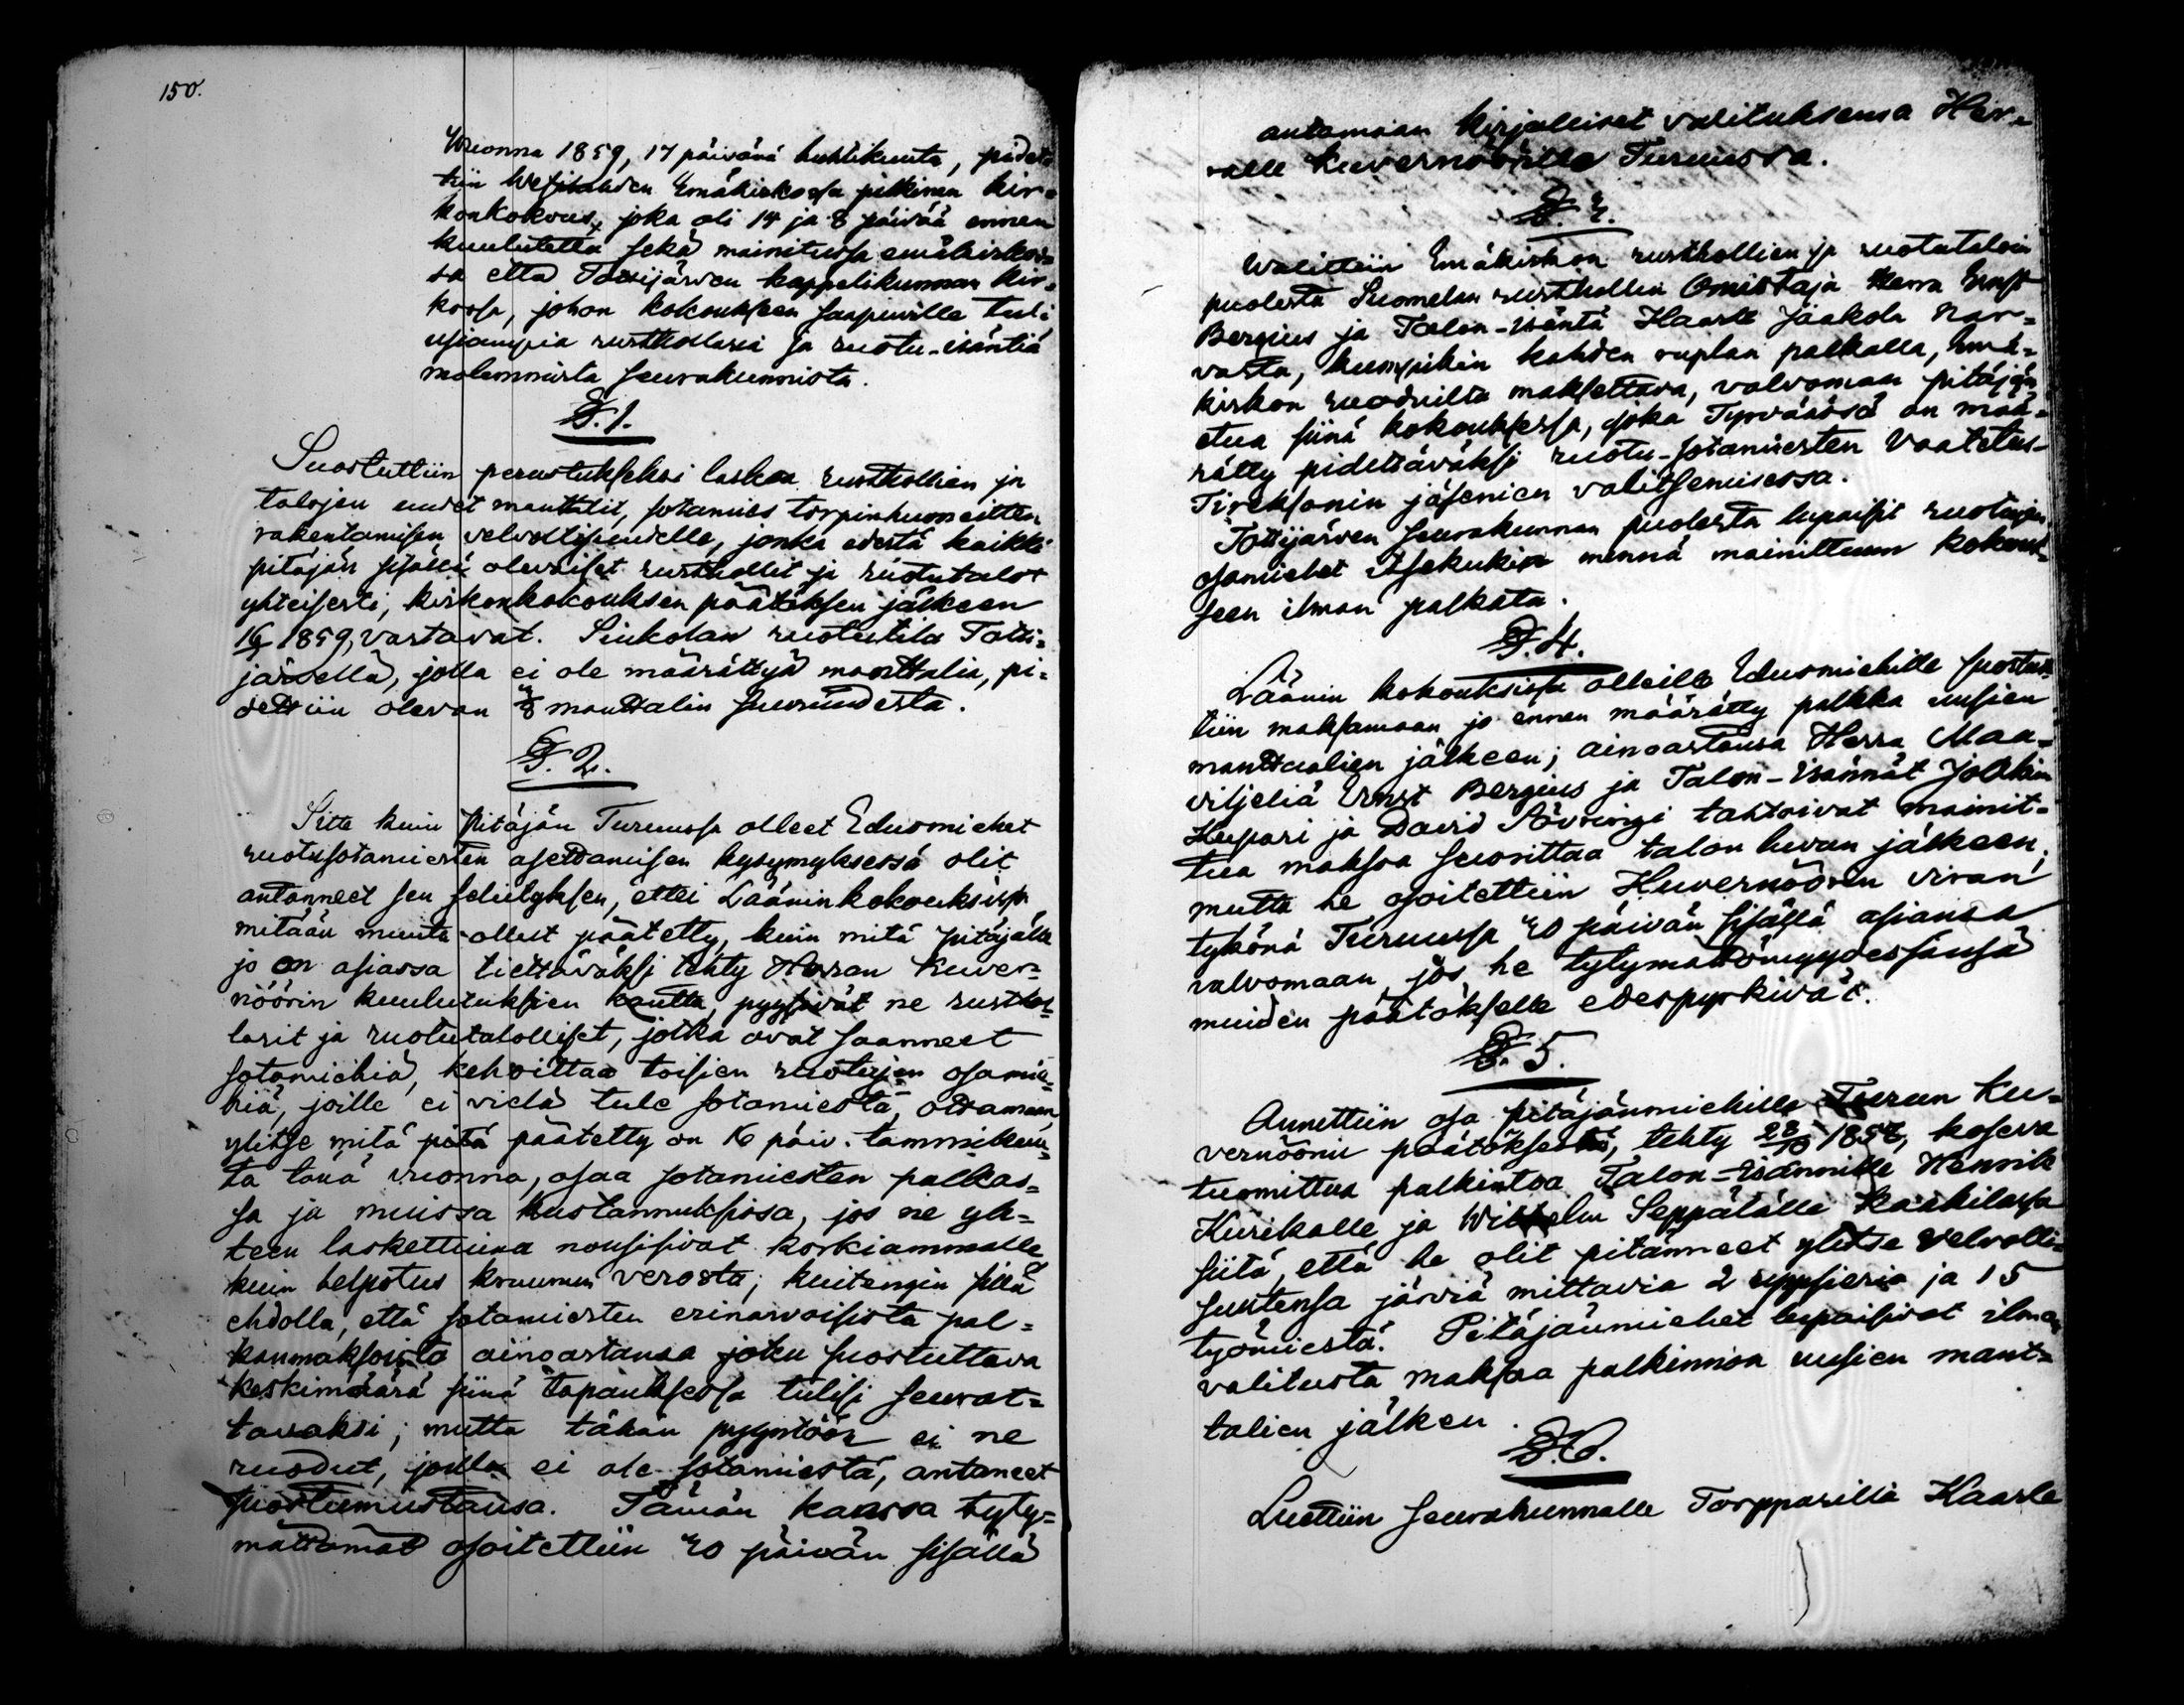 150.
Wuonna 1859, 17 päivänä huhtikuuta, pidet-
tiin Wesilahden Emäkirkossa pitkinen kir=
konkokous, joka oli 14 ja 8 päivää ennen
kuulutettu sekä mainitussa emäkirkos=
sa että Tottijärven kappelikunnan kir=
kossa, johon kokoukseen saapuville tuli
usiampia rusthollaria ja ruotu-isäntiä
molemmista seurakunnista.
§.1.
Suostuttiin perustukseksi laskea rusthollien ja
talojen uudet manttalit, sotamies torpinhuoneitten
rakentamisen velvollisuudelle, jonka edestä kaikki
pitäjän sisällä olevaiset rusthollit ja ruotutalot
yhteisesti, kirkonkokouksen päätöksen jälkeen
16/1 1859, vastavat. Siukolan ruotutila Totti=
järvellä, jolla ei ole määrättyä manttalia, pi=
dettiin olevan manttalin suuruudesta.
§.2.
Sitte kuin Pitäjän Turussa olleet Edusmiehet
ruotusotamiesten asettamisen kysymyksessä olit
antanneet sen selityksen, ettei Läänin kokouksissa
mitään muuta ollut päätetty, kuin mitä pitäjälle
jo on asiassa tiettäväksi tehty Herran Kuver=
nöörin kuulutuksien kautta, pyysivät ne rusthol=
larit ja ruotutalolliset, jotka ovat saanneet
sotamiehiä, kehoittaa toisien ruotujen osamie=
hiä, joille ei vielä tule sotamiestä, ottamaan,
ylitse mitä pitä päätetty on 16 päiv. tammikuu=
ta tänä vuonna, osaa sotamiesten palkas=
sa ja muissa kustannuksissa, jos ne yh=
teen laskettuina nousisivat korkiammalle
kuin helpotus kruunun verosta; kuitengin sillä
ehdolla, että sotamiesten erinarvoisista pal=
kanmaksoista ainoastansa joku suostuttava
keskimäärä siinä tapauksessa tulisi seurat=
tavaksi; mutta tähän pyyntöön ei ne
ruodut, joilla ei ole sotamiestä, antaneet
suostumustansa. Tämän kanssa tyty=
mättömät osoitettiin 30 päivän sisällä
antamaan kirjalliset valituksensa Her=
ralle Kuvernöörille Turussa.
§.3.
Walittiin Emäkirkon rusthollien ja ruotutaloin
puolesta Suomelan rusthollin Omistaja Herra Ernst
Bergius ja Talon-Isäntä Kaarle Jaakola Nar=
vasta, kumpikin kahden ruplan palkalla, Emä=
kirkon ruoduilta maksettava, valvomaan pitäjän
etua siinä kokouksessa, joka Tyrväässä on mää=
rätty pidettäväksi ruotu-sotamiesten Vaatetus-
Tireksonin jäsenien valitsemisessa.
Tottijärven seurakunnan puolesta lupaisit ruotujen
osamiehet itsekukin mennä mainittuun kokouk=
seen ilman palkata.
§.4.
Läänin kokouksissa olleille Edusmiehille suostut=
tiin maksamaan jo ennen määrätty palkka uusien
manttaalien jälkeen; ainoastansa Herra Maa=
viljeliä Ernst Bergius ja Talon-Isännät Joakim
Kupari ja David Rövringi tahtoivat mainit=
tua maksoa suorittaa talon luvun jälkeen;
mutta he osoitettiin Kuvernöörin viran
tykönä Turussa 30 päivän sisällä asiansa
valvomaan, jos he tytymättömyydessänsä
muiden päätökselle edespyrkivät.
§.5.
Annettiin osa pitäjänmiehille Turun Ku=
vernöörin päätöksestä, tehty 1858, koseva
tuomittua palkintoa Talon-Isännille Henrik
Kurikalle ja Wilhelm Seppälälle Kaakilasta
siitä, että he olit pitänneet ylitse velvolli=
suutensa järviä mittavia 2 uppsieria ja 15
työmiestä. Pitäjänmiehet lupaisivat ilman
valitusta maksaa palkinnon uusien mant=
talien jälken.
§.6.
Luettiin seurakunnalle Torpparilla Kaarle